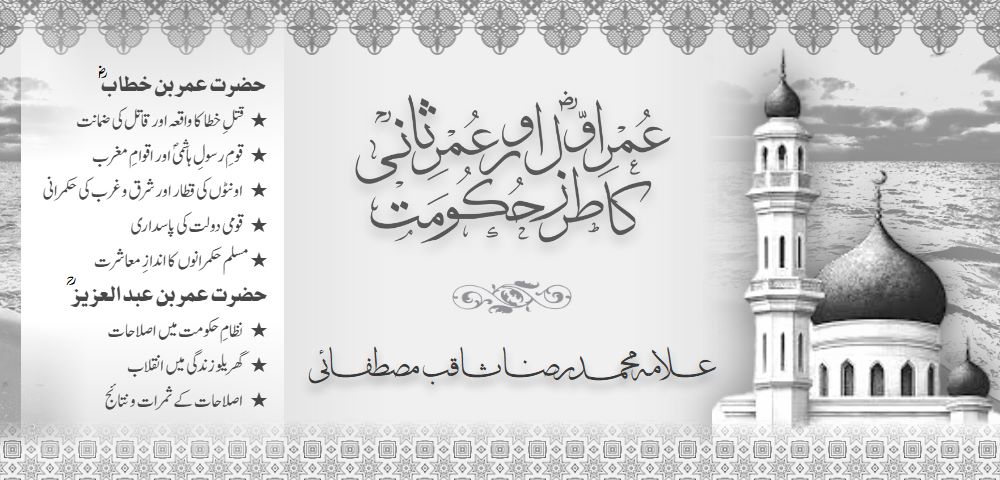 عُمَرِ اوّلؓ اور عُمَرِ ثانیؒ
کا طرزِ حُکُومَت
علامہ محمد رضا ثاقب مصطفائی
حضرت عمر بن خطابؓ
★ قتلِ خطا کا واقعہ اور قاتل کی ضمانت
★ قومِ رسولِ ہاشمیؐ اور اقوامِ مغرب
★ اونٹوں کی قطار اور شرق و غرب کی حکمرانی
★ قومی دولت کی پاسداری
★ مسلم حکمرانوں کا اندازِ معاشرت
حضرت عمر بن عبدالعزیزؒ
★ نظامِ حکومت میں اصلاحات
★ گھریلو زندگی میں انقلاب
★ اصلاحات کے ثمرات و نتائج